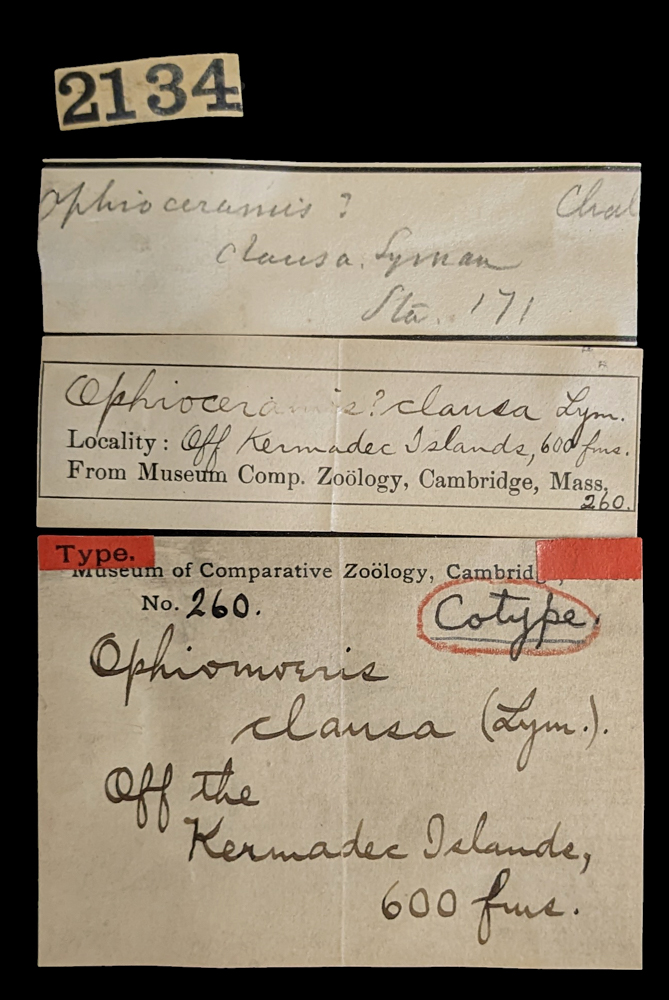 2134
Ophioceramis? Chal
clausa. Lyman
Sta. 171
Ophiocera is? clausa Lym.
Locality: Off Kermadec Islands, 600 fms.
From Museum Comp. Zoölogy, Cambridge, Mass.
260.
Type.
Museum of Comparative Zoölogy, Cambrid
No. 260.
Cotype.
Ophiomoeris
clausa (Lym.).
Off the
Kermadec Islands,
600 fms.